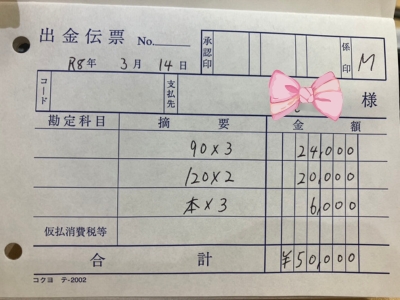 出金伝票 No. 承認印 係印 M
R8年 3月 14日
コード 支払先 様
勘定科目 摘要 金額
90×3 24,000
120×2 20,000
本×3 6,000
仮払消費税等
合計 ¥50,000
コクヨ テ-2002